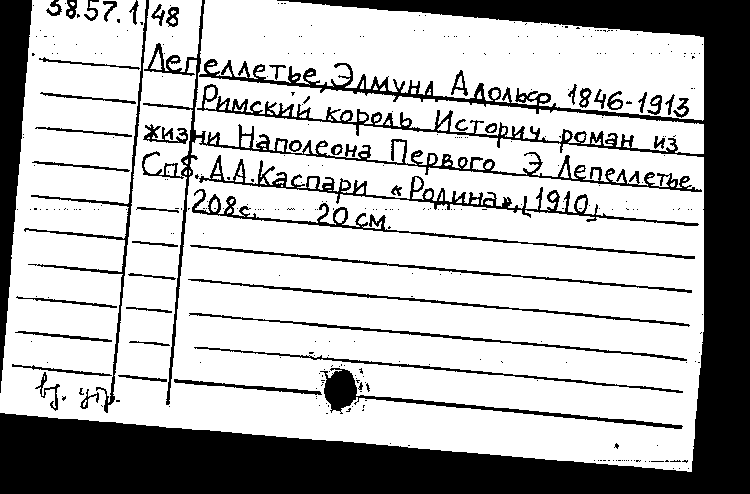 38.57.1.48
Лепеллетье, Эдмунд Адольф, 1846-1913
Римский король. Историч. роман из
жизни Наполеона Первого Э. Лепеллетье.
Спб., А.А.Каспари «Родина», [1910].
208с. 20 см.